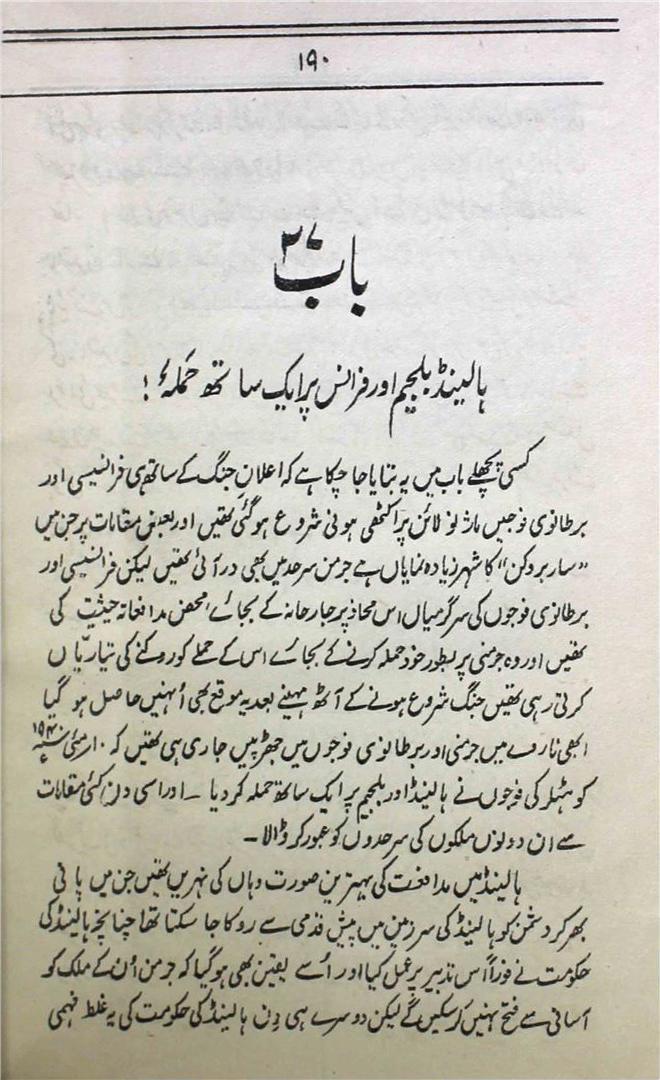 ۱۹۰
باب ۲۷
ہالینڈ بلجیم اور فرانس پر ایک ساتھ حملہ!
کسی پچھلے باب میں یہ بتایا جا چکا ہے کہ اعلانِ جنگ کے ساتھ ہی فرانسیسی اور
برطانوی فوجیں ماژنو لائن پر اکٹھی ہونی شروع ہو گئی تھیں اور بعض مقامات پر جن میں
”ساربروکن“ کا شہر زیادہ نمایاں ہے جرمن سرحد میں بھی در آئی تھیں لیکن فرانسیسی اور
برطانوی فوجوں کی سرگرمیاں اس محاذ پر جارحانہ کے بجائے محض مدافعانہ حیثیت کی
تھیں اور وہ جرمنی پر بطور خود حملہ کرنے کے بجائے اس کے حملے کو روکنے کی تیاریاں
کرتی رہی تھیں جنگ شروع ہونے کے آٹھ مہینے بعد یہ موقع بھی اُنہیں حاصل ہو گیا
ابھی ناروے میں جرمنی اور برطانوی فوجوں میں جھڑپیں جاری ہی تھیں کہ ۱۰ مئی ۱۹۴۰ء
کو ہٹلر کی فوجوں نے ہالینڈ اور بلجیم پر ایک ساتھ حملہ کر دیا ۔ اور اسی دن کئی مقامات
سے ان دونوں ملکوں کی سرحدوں کو عبور کر ڈالا ۔
ہالینڈ میں مدافعت کی بہترین صورت وہاں کی نہریں تھیں جن میں پانی
بھر کر دشمن کو ہالینڈ کی سرزمین میں پیش قدمی سے روکا جا سکتا تھا چنانچہ ہالینڈ کی
حکومت نے فوراً اس تدبیر پر عمل کیا اور اُسے یقین بھی ہو گیا کہ جرمن اُن کے ملک کو
آسانی سے فتح نہیں کر سکیں گے لیکن دوسرے ہی دِن ہالینڈ کی حکومت کی یہ غلط فہمی